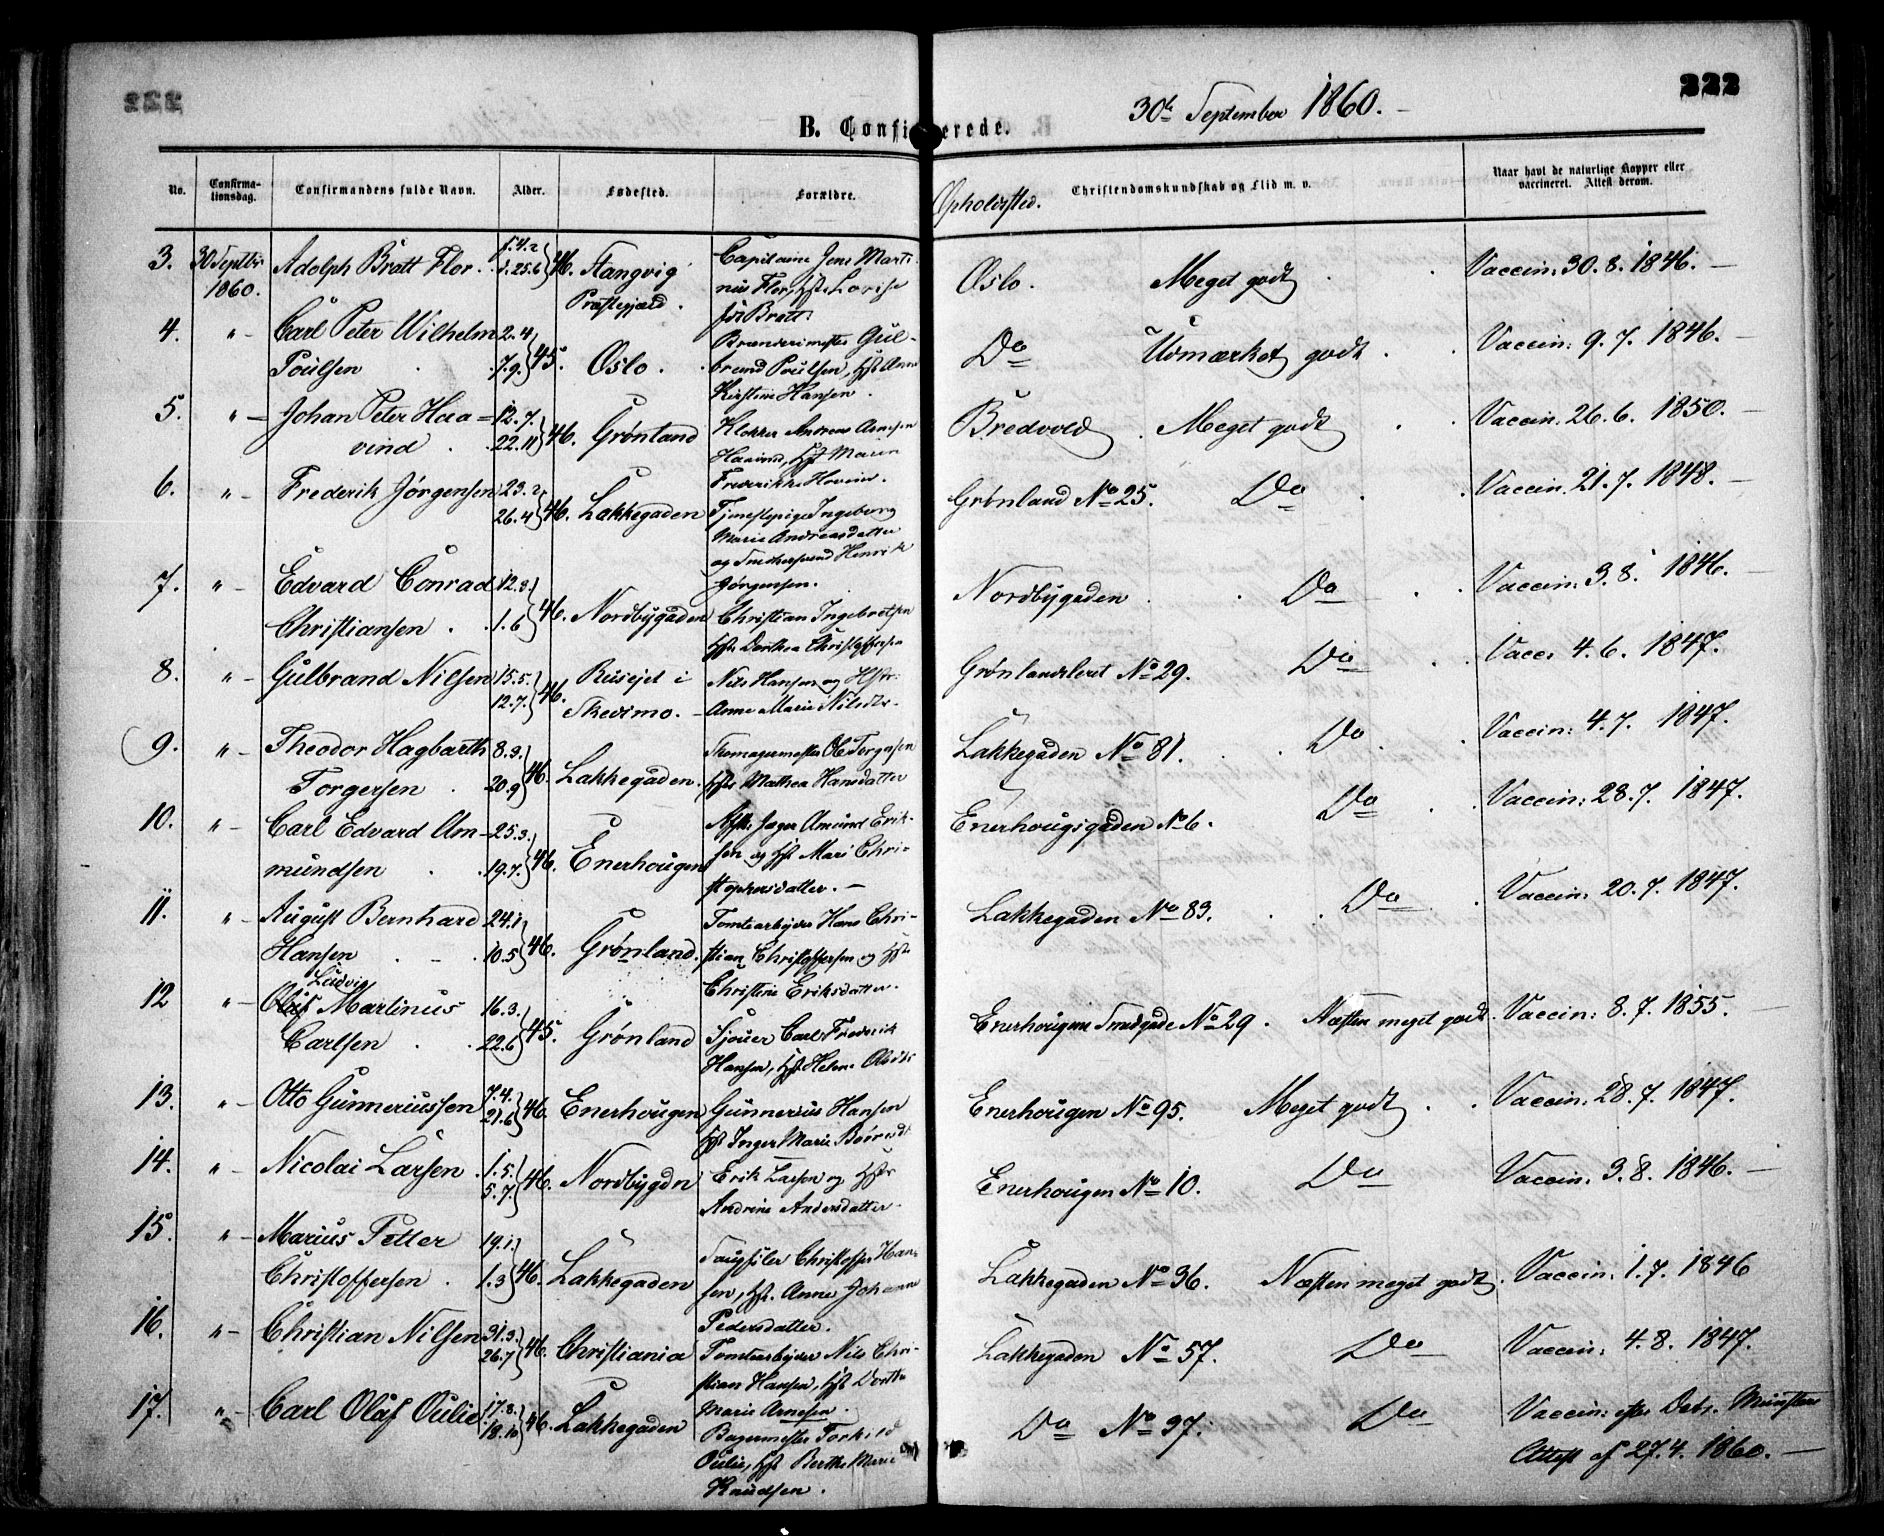 222
30te September 1860.
B. Confirmerede.
No.
Confirma-
tionsdag.
Confirmandens fulde Navn.
Alder.
Fødested.
Forældre.
Opholdssted.
Christendomskundskab og Flid m. v.
Naar havt de naturlige Kopper eller
vaccineret. Attest derom.
3. 30 Septbr 1860. Adolph Bratt Flor. f. 4.2 d. 25.6 } 46. Stangvig Præstegjæld. Capitaine Jens Marti-
nus Flor, Hst. Lovise
Bratt.
Oslo. Meget godt Vaccin: 30. 8. 1846. –
4. " – Carl Peter Wilhelm Poulsen 2.4 7.9. } 45. Oslo. Brænderimester Gul-
brand Poulsen, Hst Anne
Kirstine Hansen.
Do Udmærket godt Vaccin: 9. 7. 1846. –
5. " – Johan Peter Haa-
vind 12.7. 22.11 } 46. Grønland Klokker Andreas Arnesen
Haavind, Hst Maren
Frederikke Hovind.
Bredvold Meget godt Vaccin. 26. 6. 1850. –
6. " – Frederik Jørgensen 23.2 26.4 } 46. Lakkegaden Tjenestepige Ingeborg
Marie Andreasdatter
og Henrik
Jørgensen.
Grønland No 25. Do Vaccin. 21. 7. 1848. –
7. " – Edvard Conrad
Christiansen 12.3. 1.6 } 46. Nordbygaden Christian Ingebretsen
Hst. Dorthea Christoffersen
Nordbygaden Do Vaccin: 3. 8. 1846. –
8. " – Gulbrand Nilsen 15.5. 12.7. } 46. Rusejet i
Skedsmo. – Nils Hansen og Hstr.
Anne Marie Nilsdtr.
Grønlandsleret No 29. Do Vacc. 4. 6. 1847.
9. " – Theodor Hagbarth
Torgersen 8.3. 20.9 } 46. Lakkegaden. Ole Torgersen
Hst. Mathea Hansdatter
Lakkegaden No 81. Do Vaccin: 4. 7. 1847.
10. " – Carl Edvard Am-
mundsen 25.3. 19.7. } 46. Enerhougen Afsk. Jæger Amund Erik-
sen og Hst Mari Chri-
stophersdatter. –
Enerhougsgaden No 6. Do Vaccin: 28. 7. 1847.
11. " – August Bernhard
Hansen 24.1 10.5 } 46. Grønland. Tomtearbejder Hans Chri-
stian Christoffersen og Hst
Christine Eriksdatter.
Lakkegaden No 83. Do Vaccin: 20. 7. 1847.
12 " – Ludvig
Olaf Martinus
Carlsen 16.3. 22.6 } 45. Grønland Sjouer Carl Frederik
Hansen, Hst Helene Olsdtr
Enerhougens Smedgade No 29. Næsten meget godt. Vaccin: 8. 7. 1855. –
13. " – Otto Gunneriussen 7.4. 21.6 } 46. Enerhougen Gunnerius Hansen
Hst Inger Marie
Enerhougen No 95. Meget godt Vaccin: 28. 7. 1847.
14. " – Nicolai Larsen 1.5. 5.7. } 46. Nordbygdn Erik Larsen og Hstr
Andrine Andersdatter.
Enerhougen No 10. Do Vaccin: 3. 8. 1846. –
15. " – Marius Petter
Christoffersen 19.1. 1.3 } 46. Lakkegaden Christoffer Han-
sen, Hst. Anne Johanne
Pedersdatter.
Lakkegaden No 36. Næsten meget godt. Vaccin: 1. 7. 1846
16. " – Christian Nilsen 31.3. 26.7 } 46. Christiania Tomtearbejder Nils Chri-
stian Hansen, Hst Dorthe
Marie Arnesen.
Lakkegaden No 57. Do Vaccin: 4. 8. 1847.
17. " – Carl Olaf Oulie 17.8. 18.10 } 46. Lakkegaden Bagermester Torkild
Oulie, Hst Berthe Marie
Knudsen.
Do No 97. Do Vaccin: efter Münsters
Attest af 27. 4. 1860. –